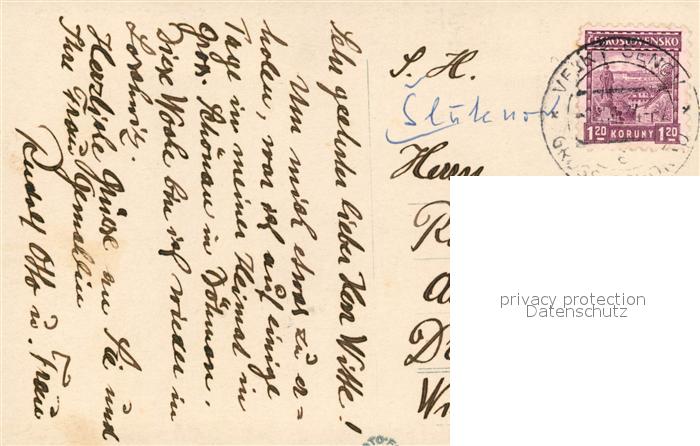 Sehr geehrter lieber Herr Witte!
Um mich etwas zu er-
holen, war ich auf einige
Tage in meiner Heimat in
Gross Schönau in Böhmen.
Diese Woche bin ich wieder in
Loschwitz.
Herzliche Grüsse an Sie und
Ihre Frau Gemahlin
Rudolf Otto u. Frau
S. H.
Herrn
ČESKOSLOVENSKO
1.20 KORUNY 1.20
privacy protection
Datenschutz